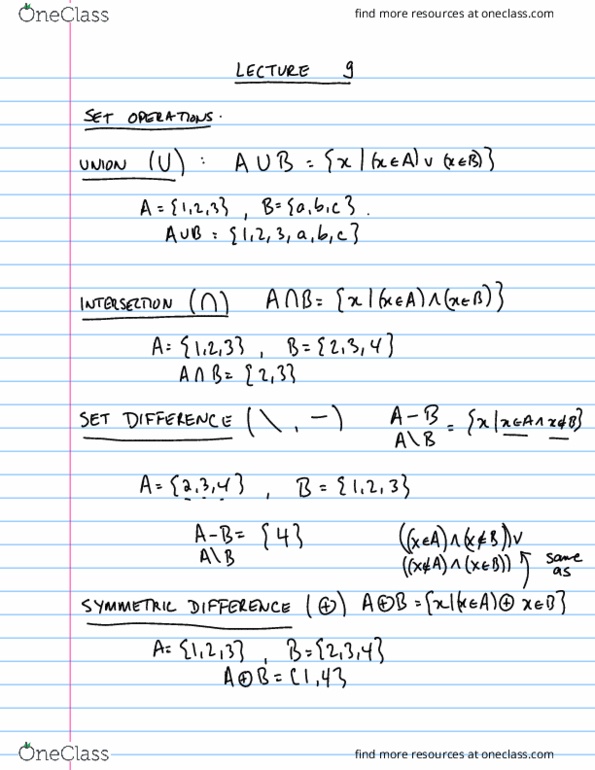 OneClass find more resources at oneclass.com
LECTURE 9
SET OPERATIONS.
UNION (∪) : A ∪ B = {x | (x∈A) ∨ (x∈B)}
A = {1,2,3} , B = {a,b,c} .
A∪B = {1, 2, 3, a, b, c}
INTERSECTION (∩) A∩B = {x | (x∈A) ∧ (x∈B)}
A = {1,2,3} , B = {2,3,4}
A∩B = {2,3}
SET DIFFERENCE (\ , −) A − B
A\B = {x | x∈A ∧ x∉B}
A = {2,3,4} , B = {1,2,3}
A−B = {4}
A\B
((x∈A) ∧ (x∉B)) ∨
((x∉A) ∧ (x∈B)) same as
SYMMETRIC DIFFERENCE (⊕) A⊕B = {x | (x∈A) ⊕ x∈B}
A = {1,2,3} , B = {2,3,4}
A⊕B = {1,4}
OneClass find more resources at oneclass.com